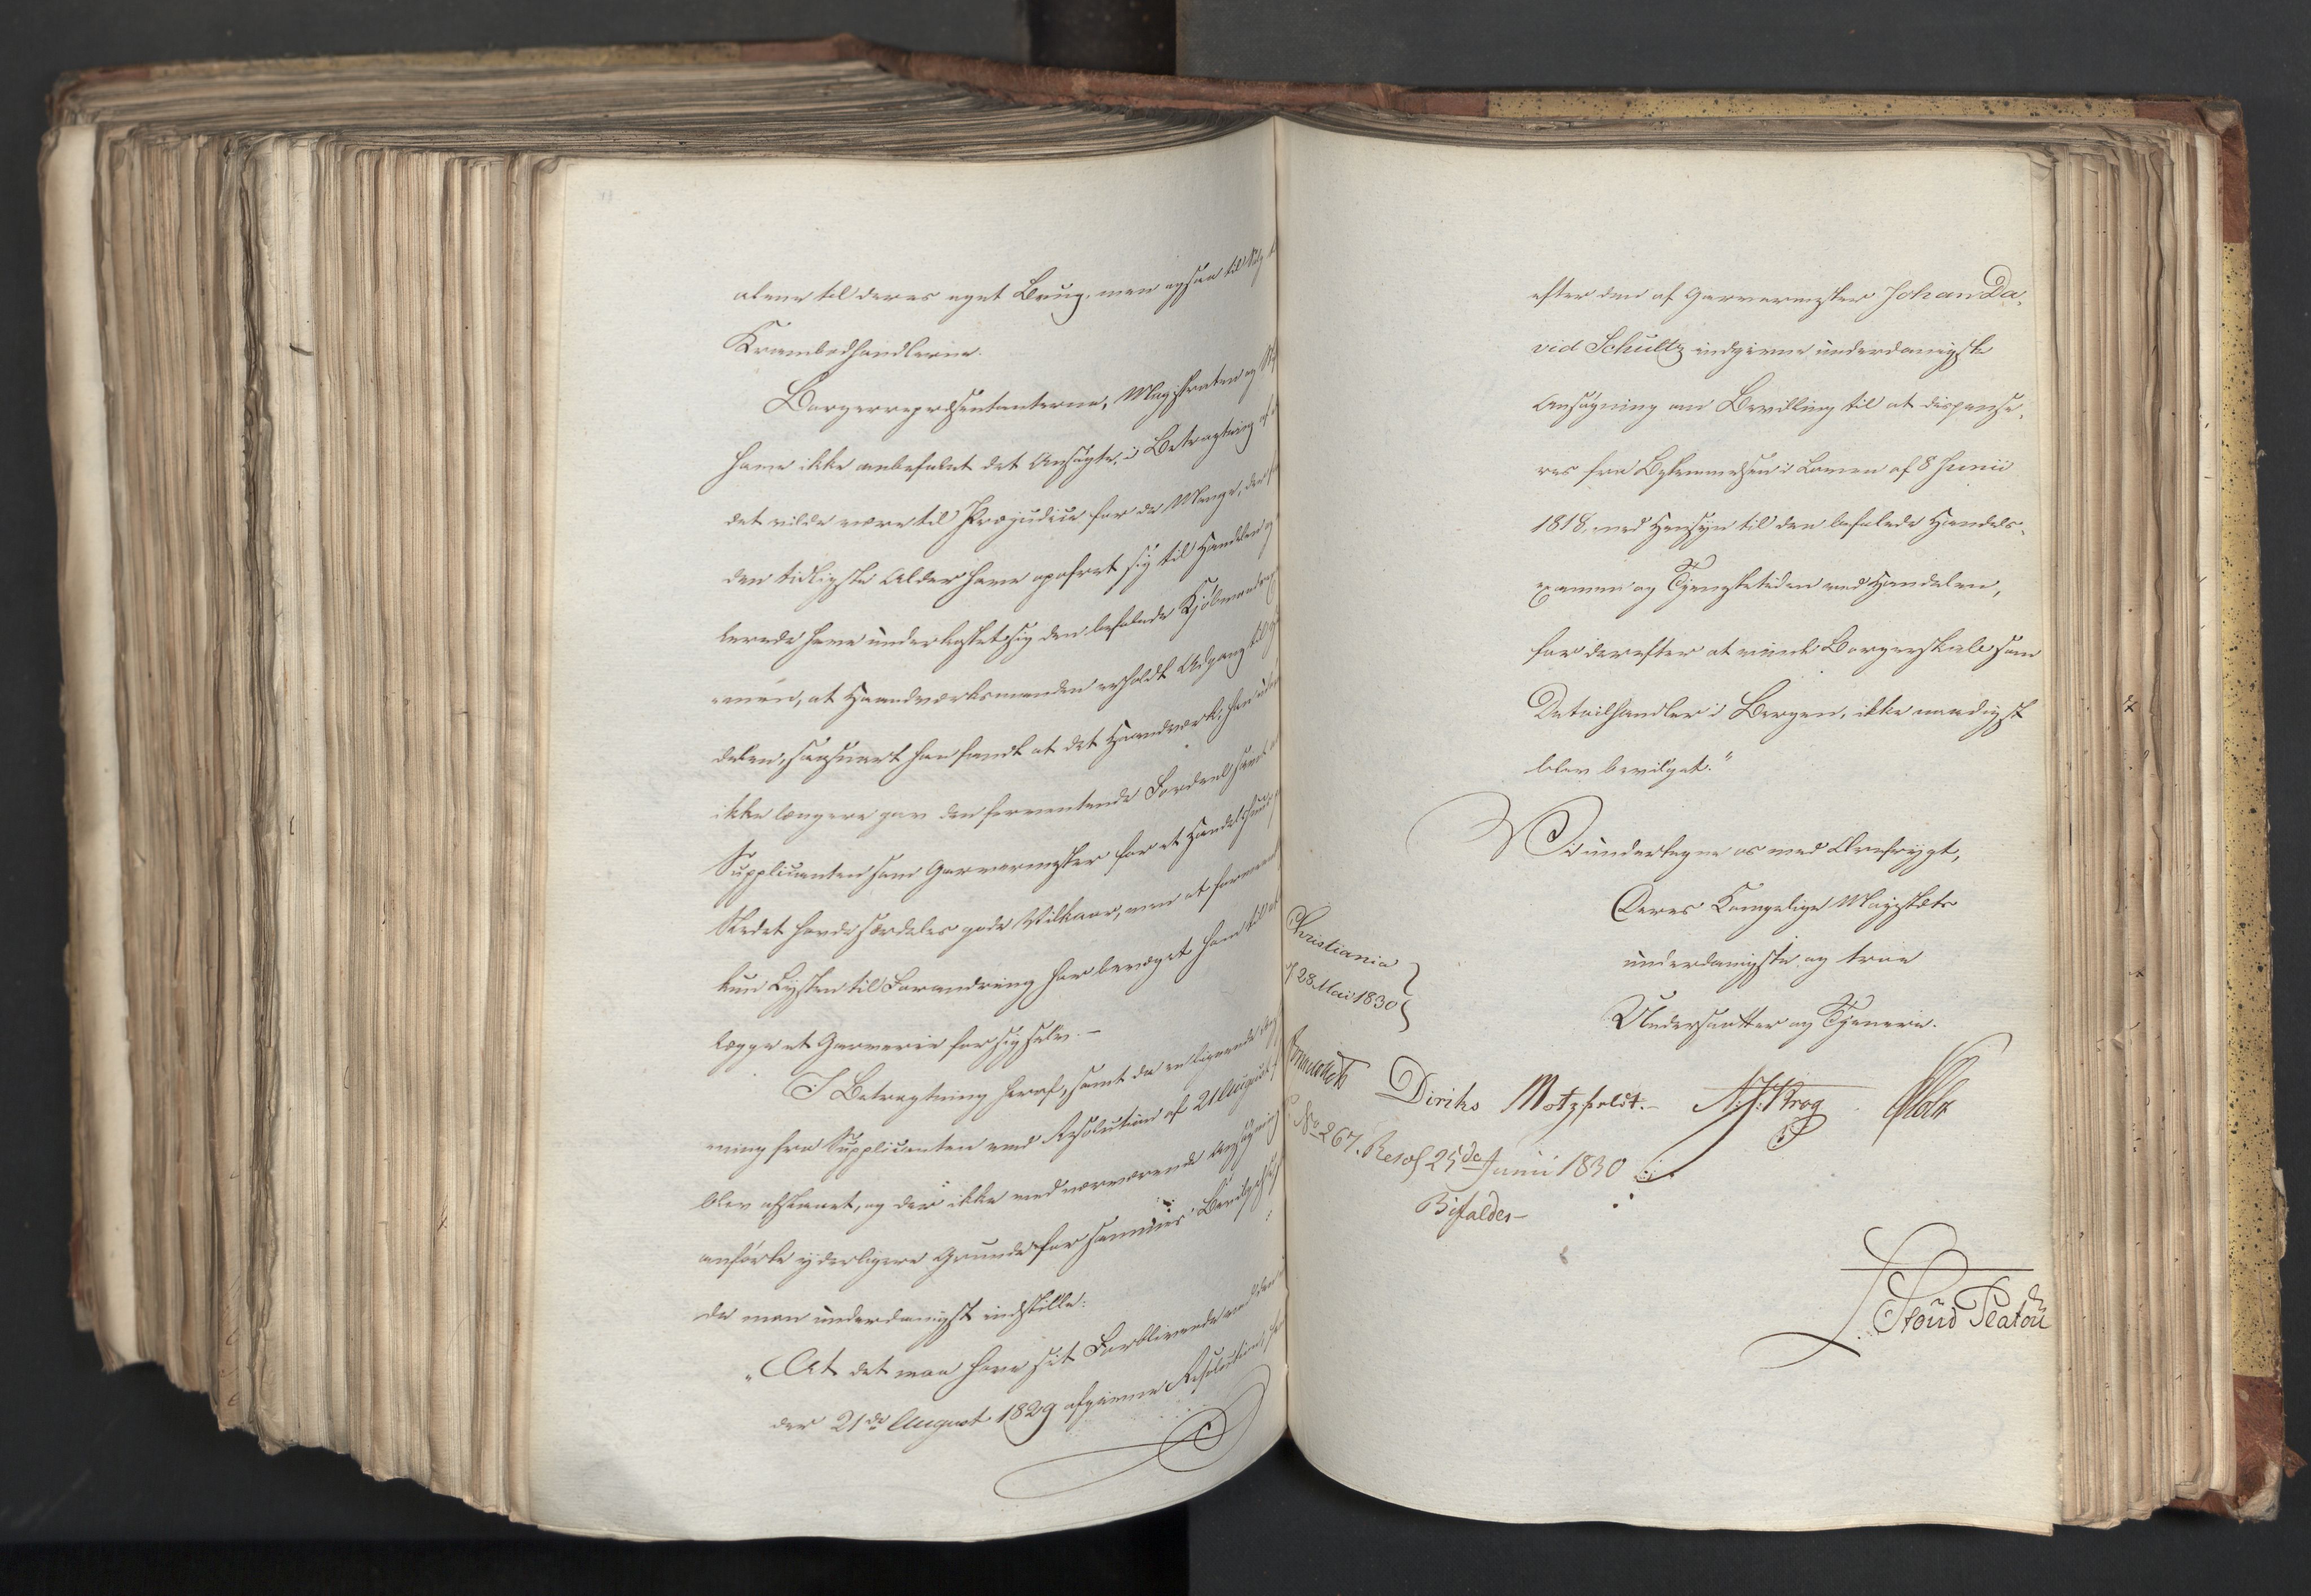 alene til deres eget Brug, men ogsaa til Salg
Krambodhandlerne.
Borgerrepræsentanterne, Magistraten og
have ikke anbefalet det Ansøgte, i Betragtning af
det vilde være til Præjudice for de Mange, der
den tidligste Alder have opofret sig til Handelen og
lerede have underkastet sig den befalede Kjøbmands
amen, at Haandværksmanden erholdt Adgang til
delen, saasnart han fandt at det Haandværk, han
ikke længere gav den forventende Fordeel, samt
Supplicanten som Garvermester for et Handelshuus
Stedet havde særdeles gode Vilkaar, men at formeent
kun Lysten til Forandring har bevæget ham til at
lægge et Garverie for sig selv. –
I Betragtning heraf, samt da en lignende
ning fra Supplicanten ved Resolution af 21 August
blev afslaaet, og der ikke med nærværende Ansøgning
anførte yderligere Grunde for sammes Bevilgelse
de man underdanigst indstille:
„At det maa have sit Forblivende ved den
der 21de August 1829 afgivne Resolution,
efter den af Garvermester Johan Da-
vid Schultz indgivne underdanigste
Ansøgning om Bevilling til at dispense-
res fra Bestemmelsen i Loven af 8 Junii
1818, med Hensyn til den befalede Handels-
examen og Tjenestetiden ved Handelen,
for derefter at vinde Borgerskab som
Detailhandler i Bergen, ikke naadigst
blev bevilget."
Vi undertegne os med Ærefrygt,
Deres Kongelige Majestæts
underdanigste og troe
Undersaatter og Tjenere.
Christiania
28 Mai 1830
Diriks Motzfeldt. – Krog Holst
No 267. Resol 25de Junii 1830
Bifaldes –
Stoud Platou